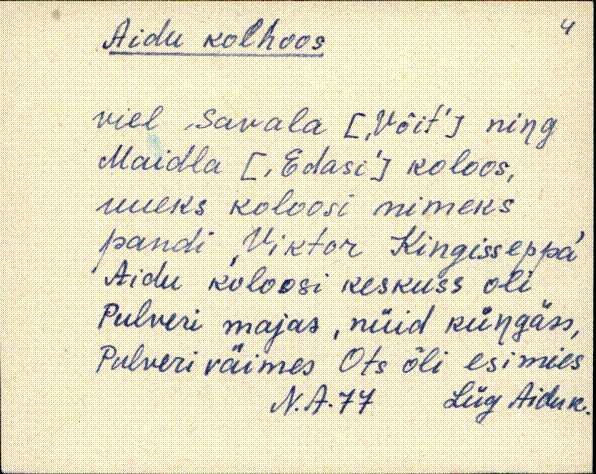 4
Aidu kolhoos
viel Savala [‚Võit’] niŋg
Maidla [‚Edasi’] koloos,
uueks koloosi nimeks
pandi ‚Viktor Kingisseppä’
Aidu koloosi keskuss oli
Pulveri majas, nüid küŋgäss,
Pulveri väimes Ots õli esimies
N.A.77 Lüg Aidu k.